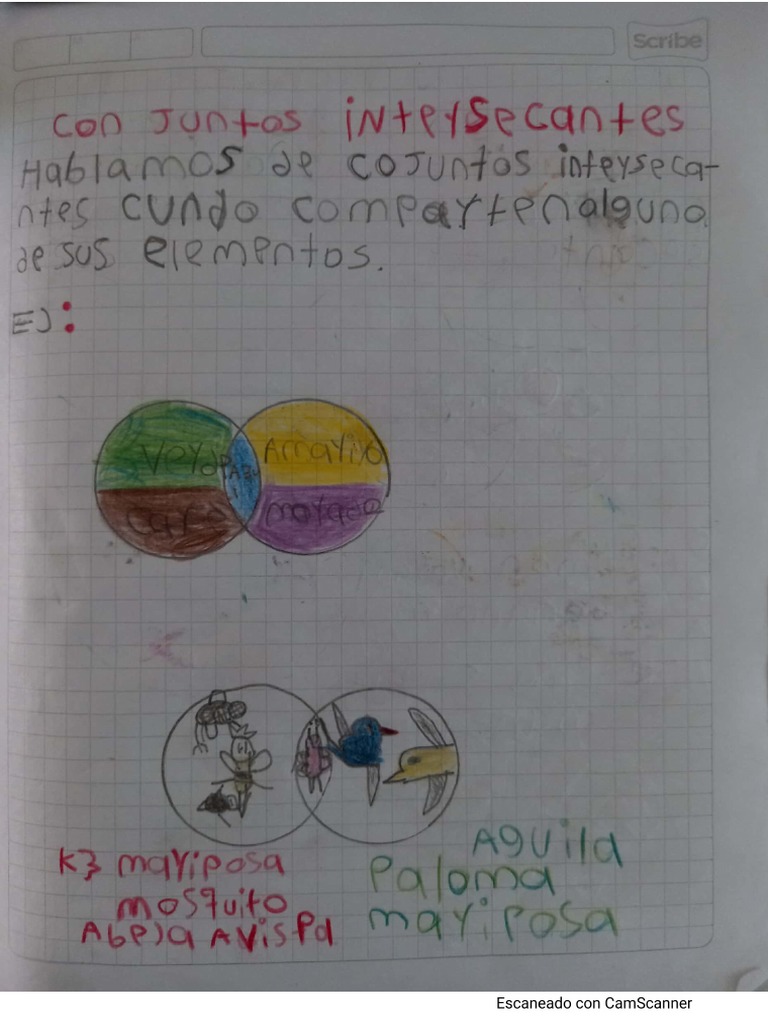 Scribe
con juntos intersecantes
Hablamos de cojuntos interseca-
ntes cundo comparten alguno
de sus elementos.
EJ:
Verde
Azul
Amarillo
Café
morado
K} mariposa
mosquito
Abeja Avispa
Aguila
Paloma
mariposa
Escaneado con CamScanner